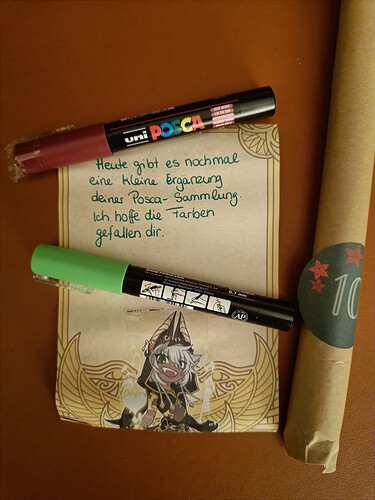 uni POSCA
Heute gibt es nochmal
eine kleine Ergänzung
deiner Posca-Sammlung.
Ich hoffe die Farben
gefallen dir.
0,7 mm
AP
10